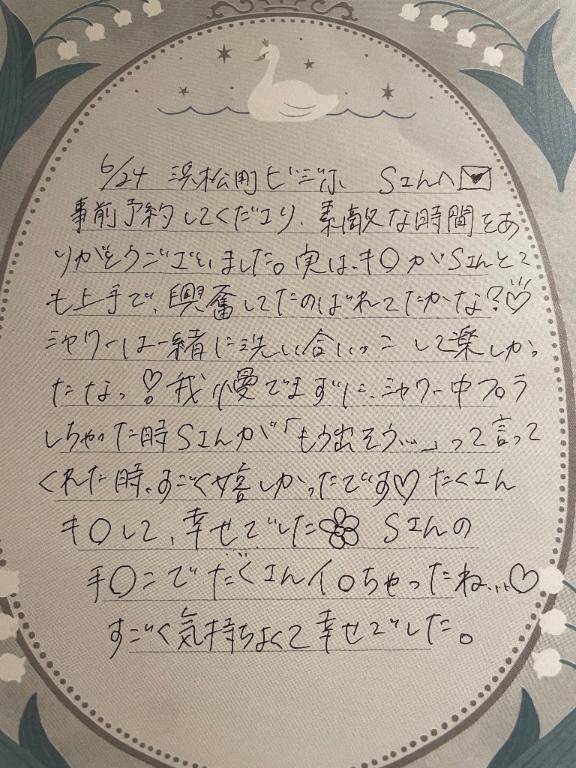 6/24 浜松町ビジホ Sさんへ
事前予約してくださり、素敵な時間をあ
りがとうございました。実は、キ〇がSさんとて
も上手で、興奮してたのばれてたかな?♡
シャワーは一緒に洗い合いっこして楽しかっ
たなっ♡ 我慢できずに、シャワー中フェラ
しちゃった時Sさんが「もう出そう…」って言って
くれた時、すごく嬉しかったです♡ たくさん
キ〇して、幸せでした Sさんの
手〇ンでたくさんイ〇ちゃったね…♡
すごく気持ちよくて幸せでした。